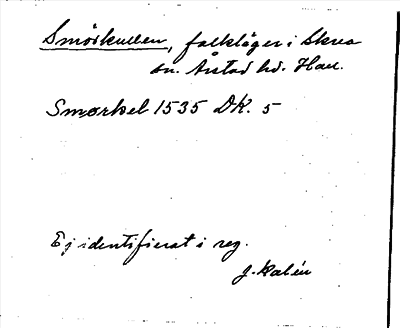 Smörkullen, folkläger i Skrea
sn. Årstad hd. Hall.
Smørkel 1535 DK. 5
Ej identifierat i reg.
J. Kalén